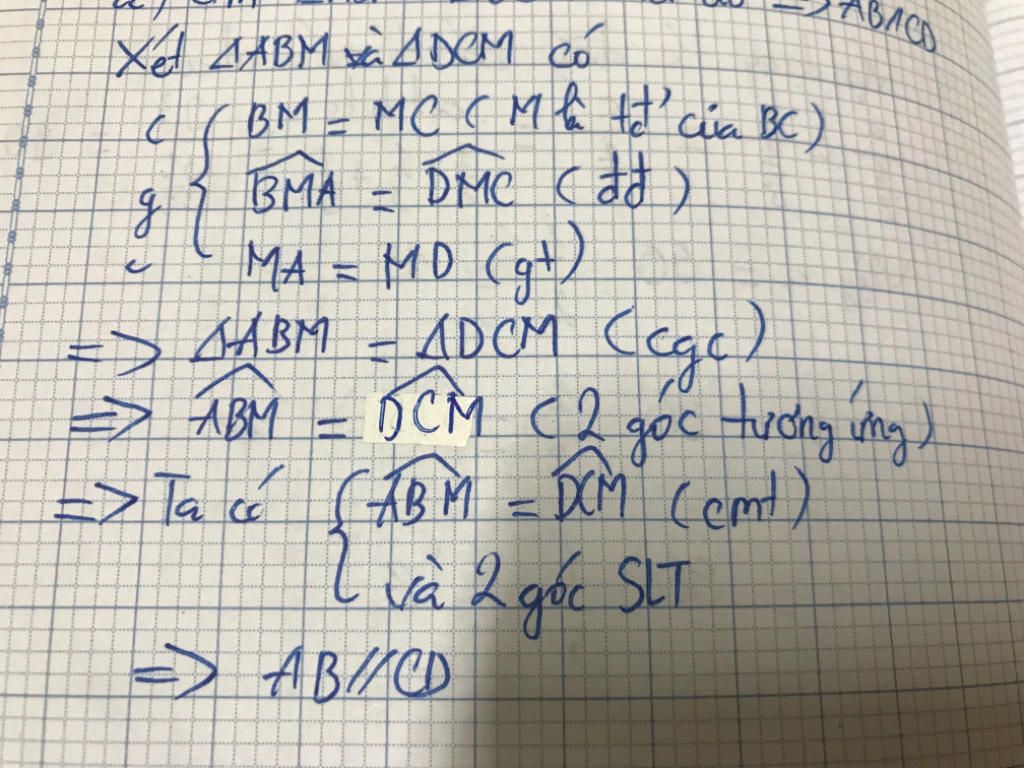 => AB//CD
Xét ΔABM và ΔDCM có
c { BM = MC ( M là tđ' của BC )
g { BMA = DMC ( đđ )
c MA = MD (gt)
=> ΔABM = ΔDCM (cgc)
=> ABM = DCM ( 2 góc tương ứng )
=> Ta có { ABM = DCM (cmt)
và 2 góc SLT
=> AB//CD